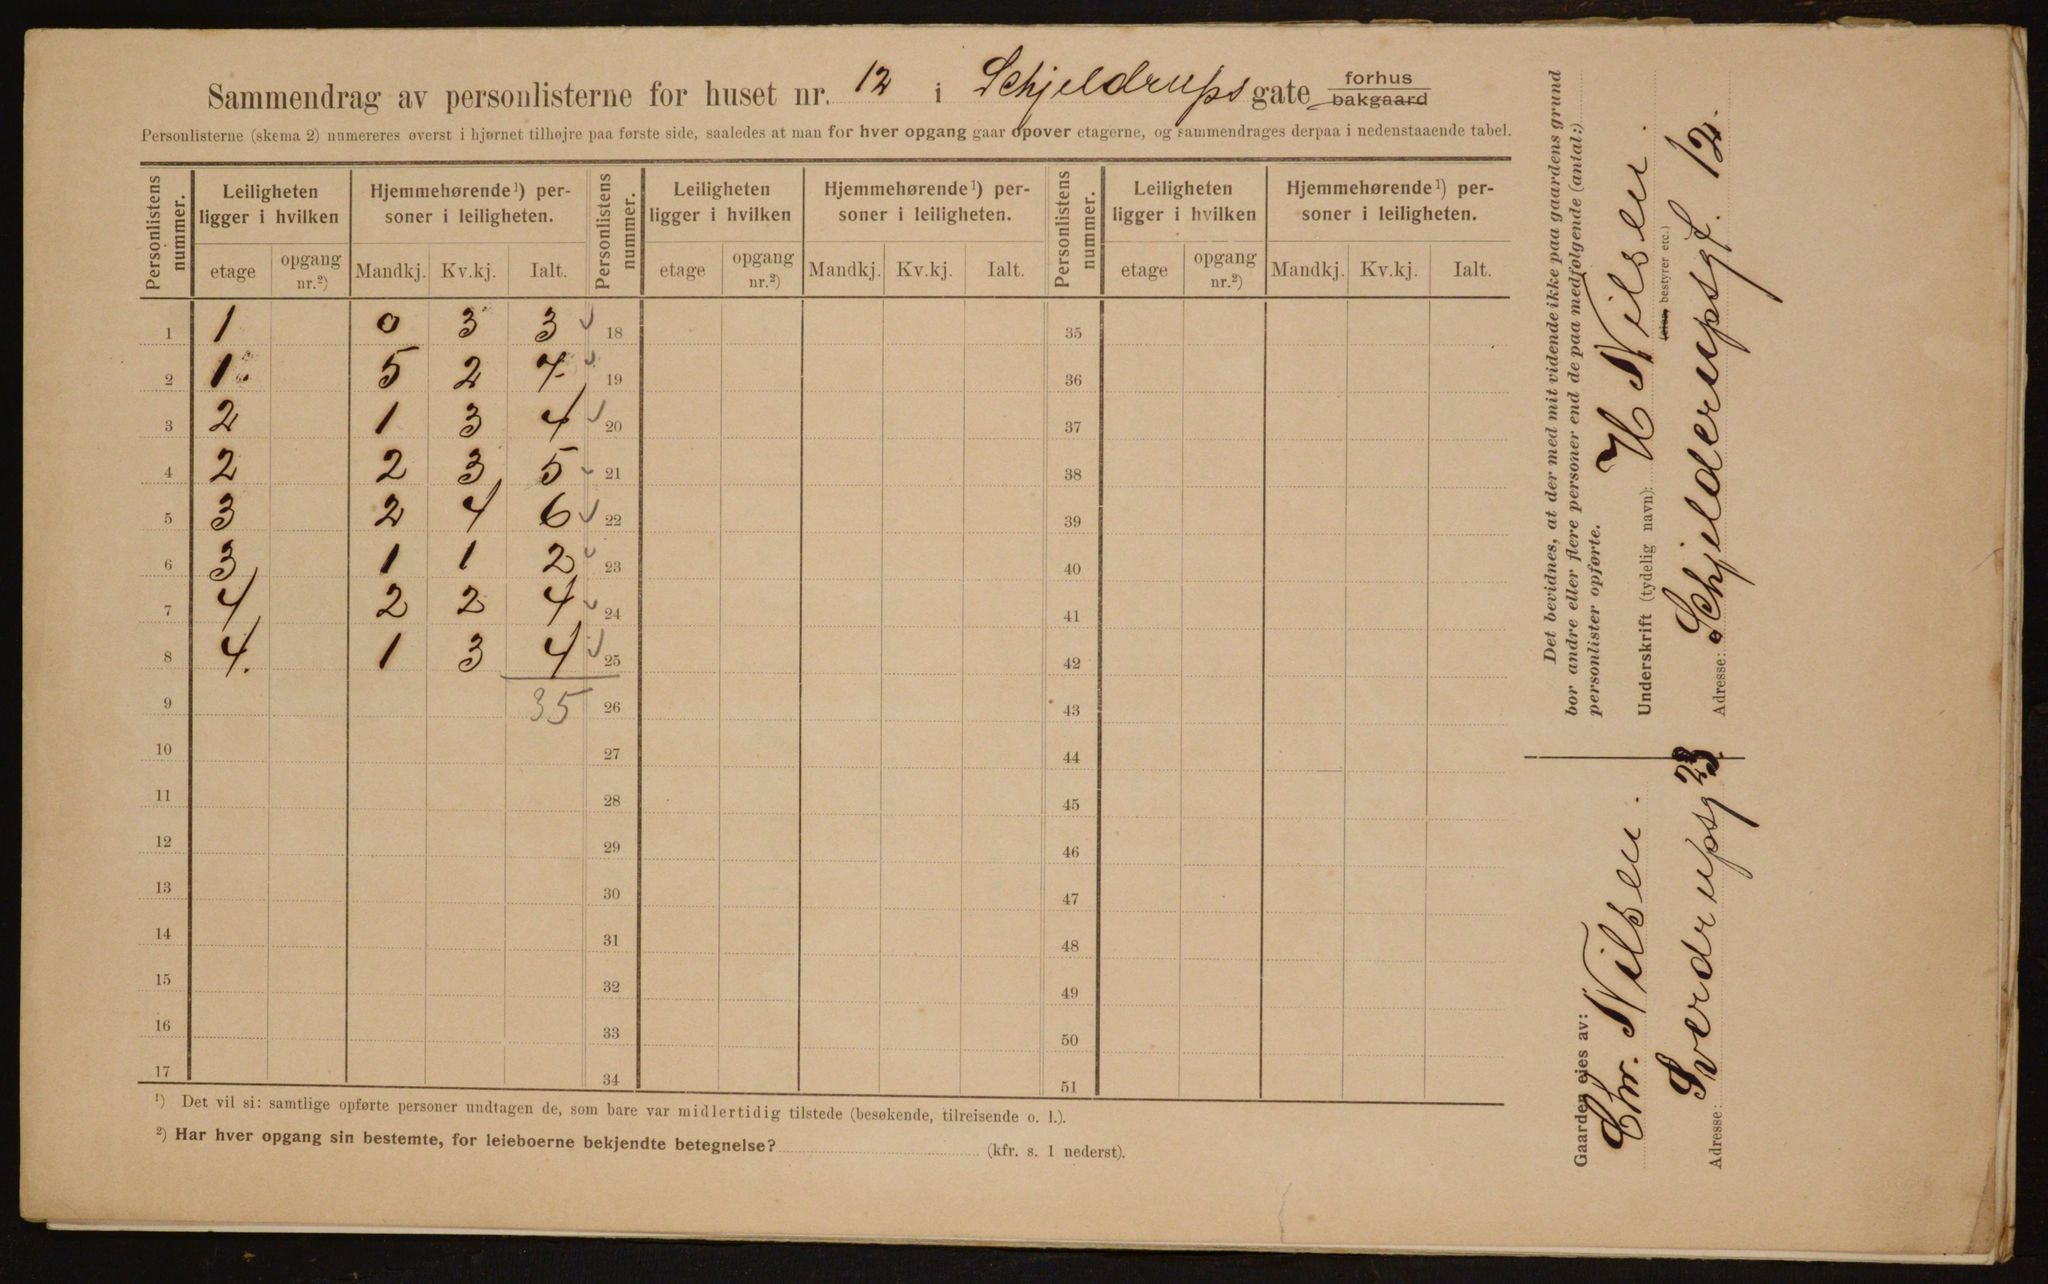 Sammendrag av personlisterne for huset nr. 12 i Schjeldrups gate forhus bakgaard
Personlisterne (skema 2) numereres øverst i hjørnet tilhøjre paa første side, saaledes at man for hver opgang gaar opover etagerne, og sammendrages derpaa i nedenstaaende tabel.
Personlistens nummer. Leiligheten ligger i hvilken Hjemmehørende¹) personer i leiligheten. Personlistens nummer. Leiligheten ligger i hvilken Hjemmehørende¹) personer i leiligheten. Personlistens nummer. Leiligheten ligger i hvilken Hjemmehørende¹) personer i leiligheten.
etage opgang nr.²) Mandkj. Kv.kj. Ialt. etage opgang nr.²) Mandkj. Kv.kj. Ialt. etage opgang nr.²) Mandkj. Kv.kj. Ialt.
1 1 0 3 3 18 35
2 1. 5 2 7. 19 36
3 2 1 3 4 20 37
4 2 2 3 5 21 38
5 3 2 4 6 22 39
6 3 1 1 2 23 40
7 4 2 2 4 24 41
8 4. 1 3 4 25 42
9 35 26 43
10 27 44
11 28 45
12 29 46
13 30 47
14 31 48
15 32 49
16 33 50
17 34 51
¹) Det vil si: samtlige opførte personer undtagen de, som bare var midlertidig tilstede (besøkende, tilreisende o. l.).
²) Har hver opgang sin bestemte, for leieboerne bekjendte betegnelse? (kfr. s. 1 nederst).
Det bevidnes, at der med mit vidende ikke paa gaardens grund
bor andre eller flere personer end de paa medfølgende (antal:)
personlister opførte.
Underskrift (tydelig navn): H Nilsen.
bestyrer etc.)
Adresse: Schjelderupsgt. 12.
Gaarden eies av:
Chr. Nilsen.
Adresse: Sverdrupsg 23.